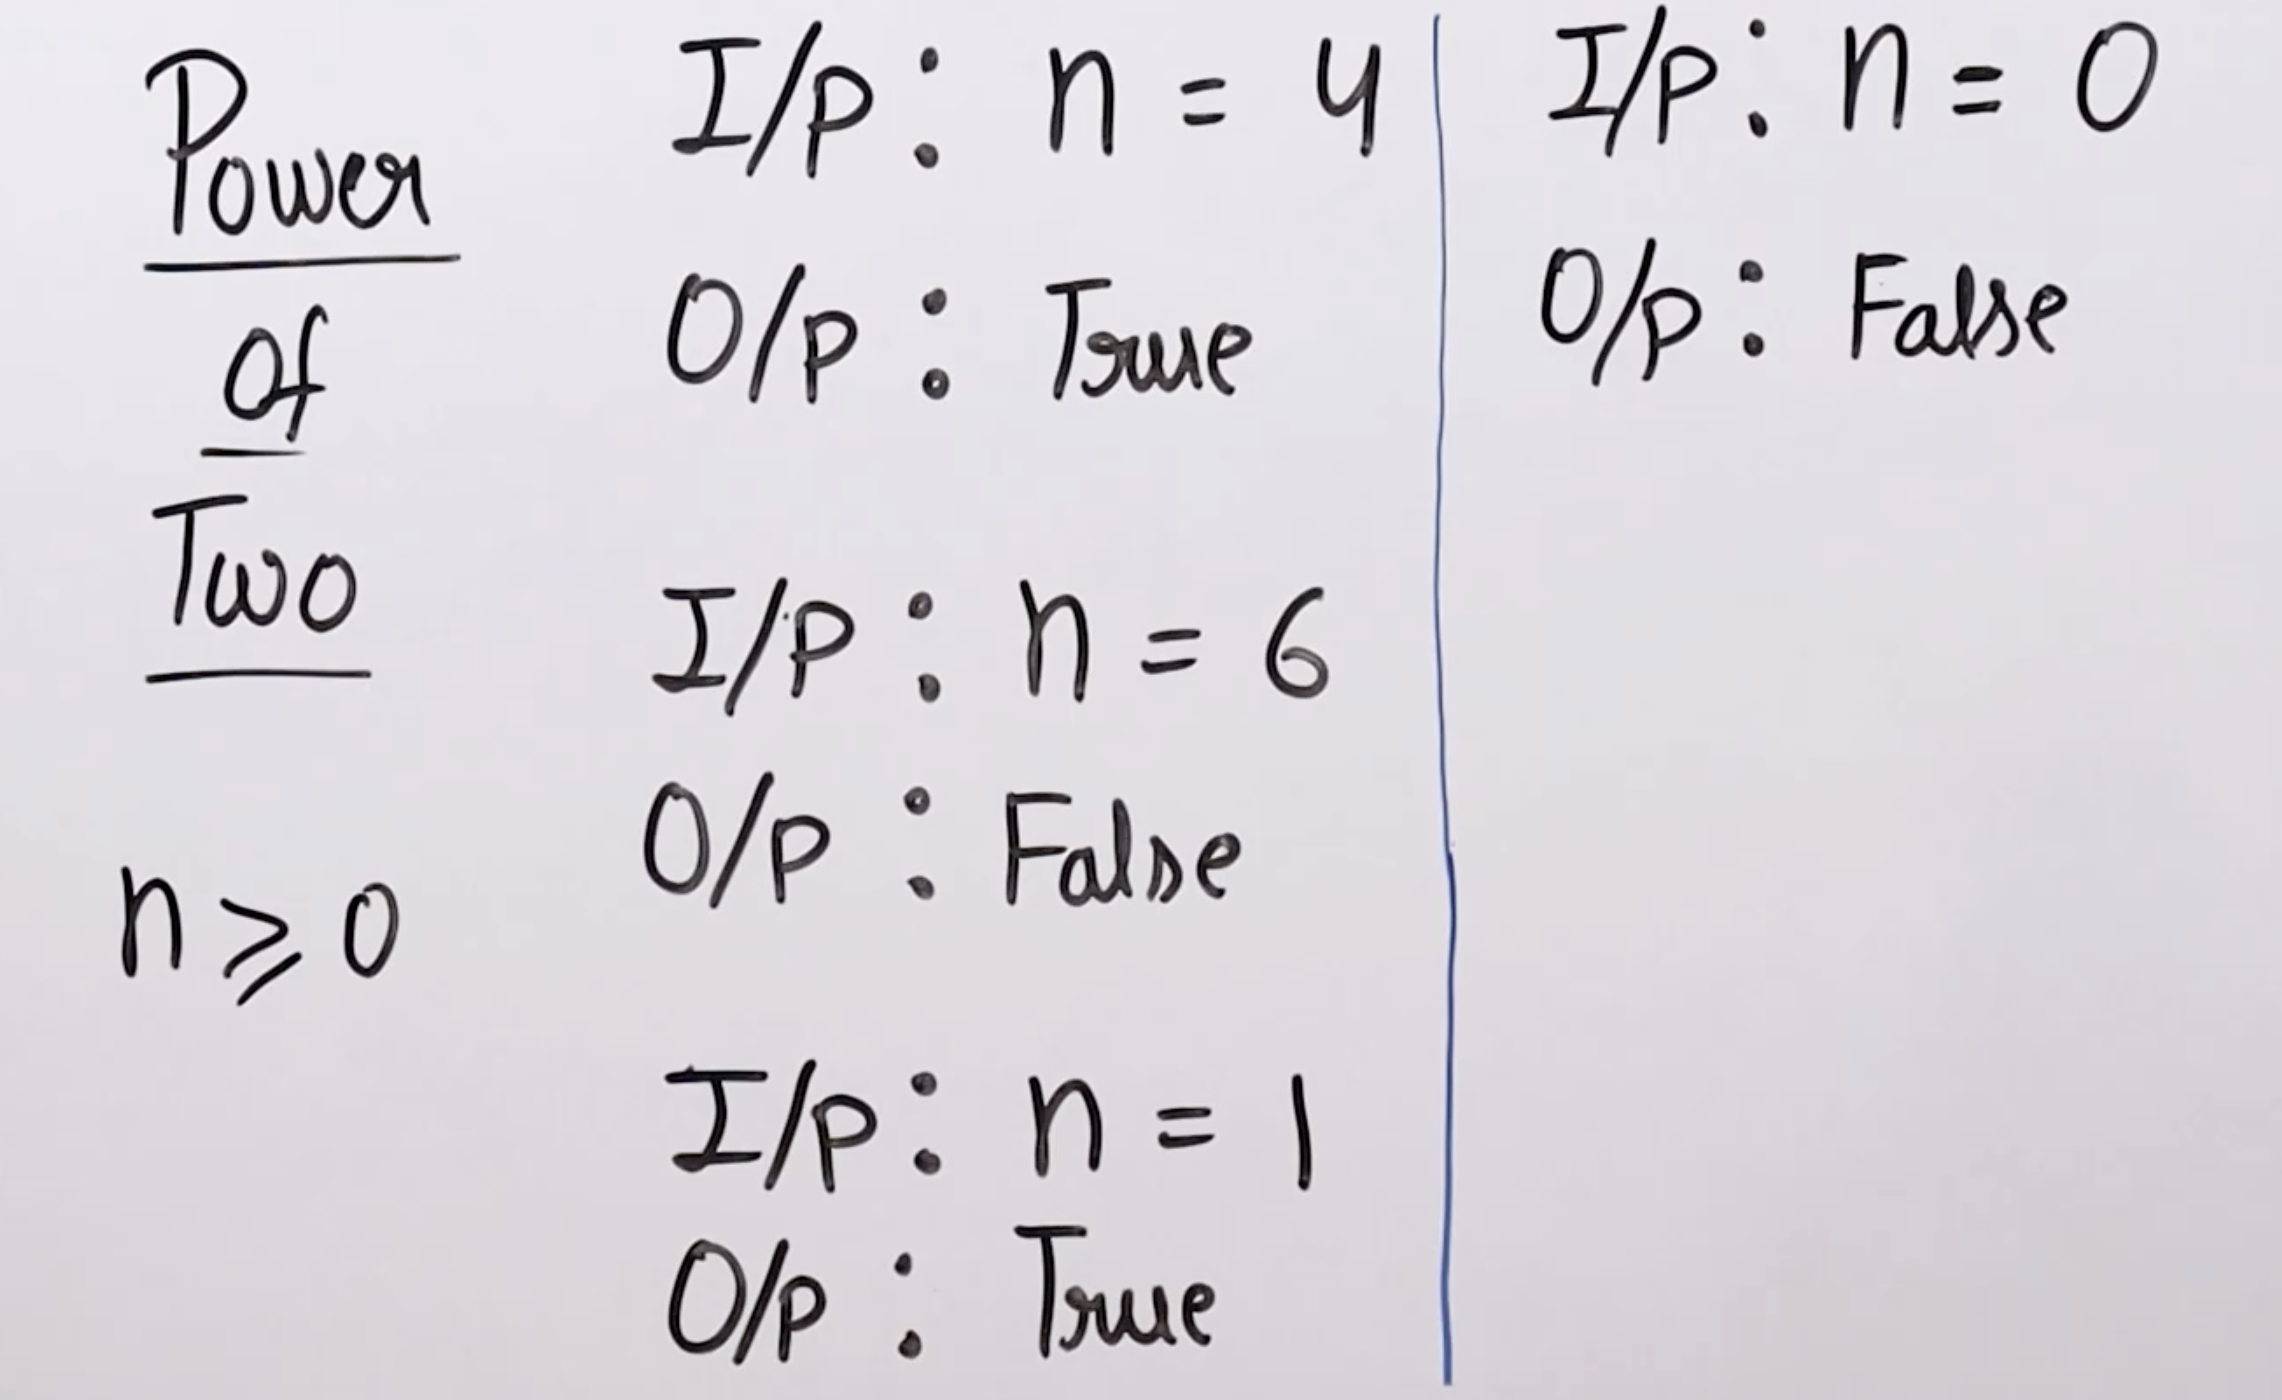 Power
of
Two
n ⩾ 0
I/p : n = 4
O/p : True
I/p : n = 6
O/p : False
I/p : n = 1
O/p : True
I/p : n = 0
O/p : False